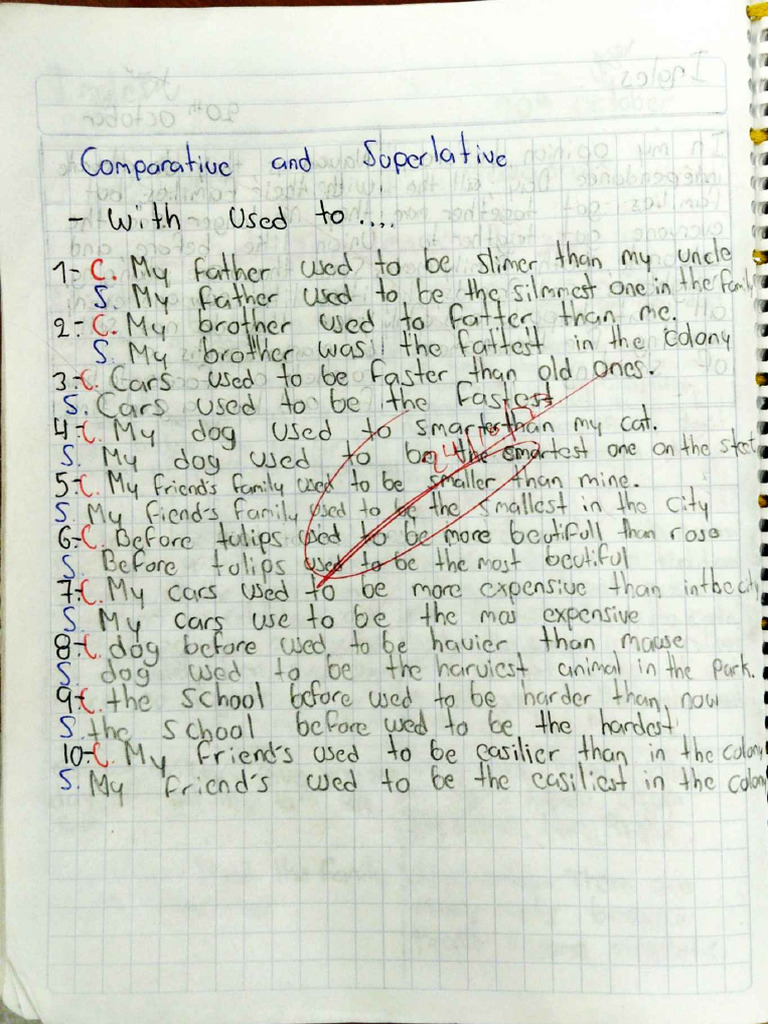 Comparative and Superlative
- With Used to....
1- C. My father used to be slimer than my uncle
S. My father used to be the silmmest one in the family
2- C. My brother used to fatter than me.
S. My brother was the fattest in the colony
3- C. Cars used to be faster than old ones.
S. Cars used to be the fastest
4- C. My dog used to smarter than my cat.
S. My dog used to be the smartest one on the
5- C. My friend's family used to be smaller than mine.
S. My fiend's family used to be the smallest in the city
6- C. Before tulips used to be more beutifull than rose
S. Before tulips used to be the most beutiful
7- C. My cars used to be more expensive than
S. My cars use to be the mos expensive
8- C. dog before used to be havier than mouse
S. dog used to be the harviest animal in the park.
9- C. the school before used to be harder than now
S. the school before used to be the hardest
10- C. My friend's used to be easilier than in the colony
S. My friend's used to be the easiliest in the colony